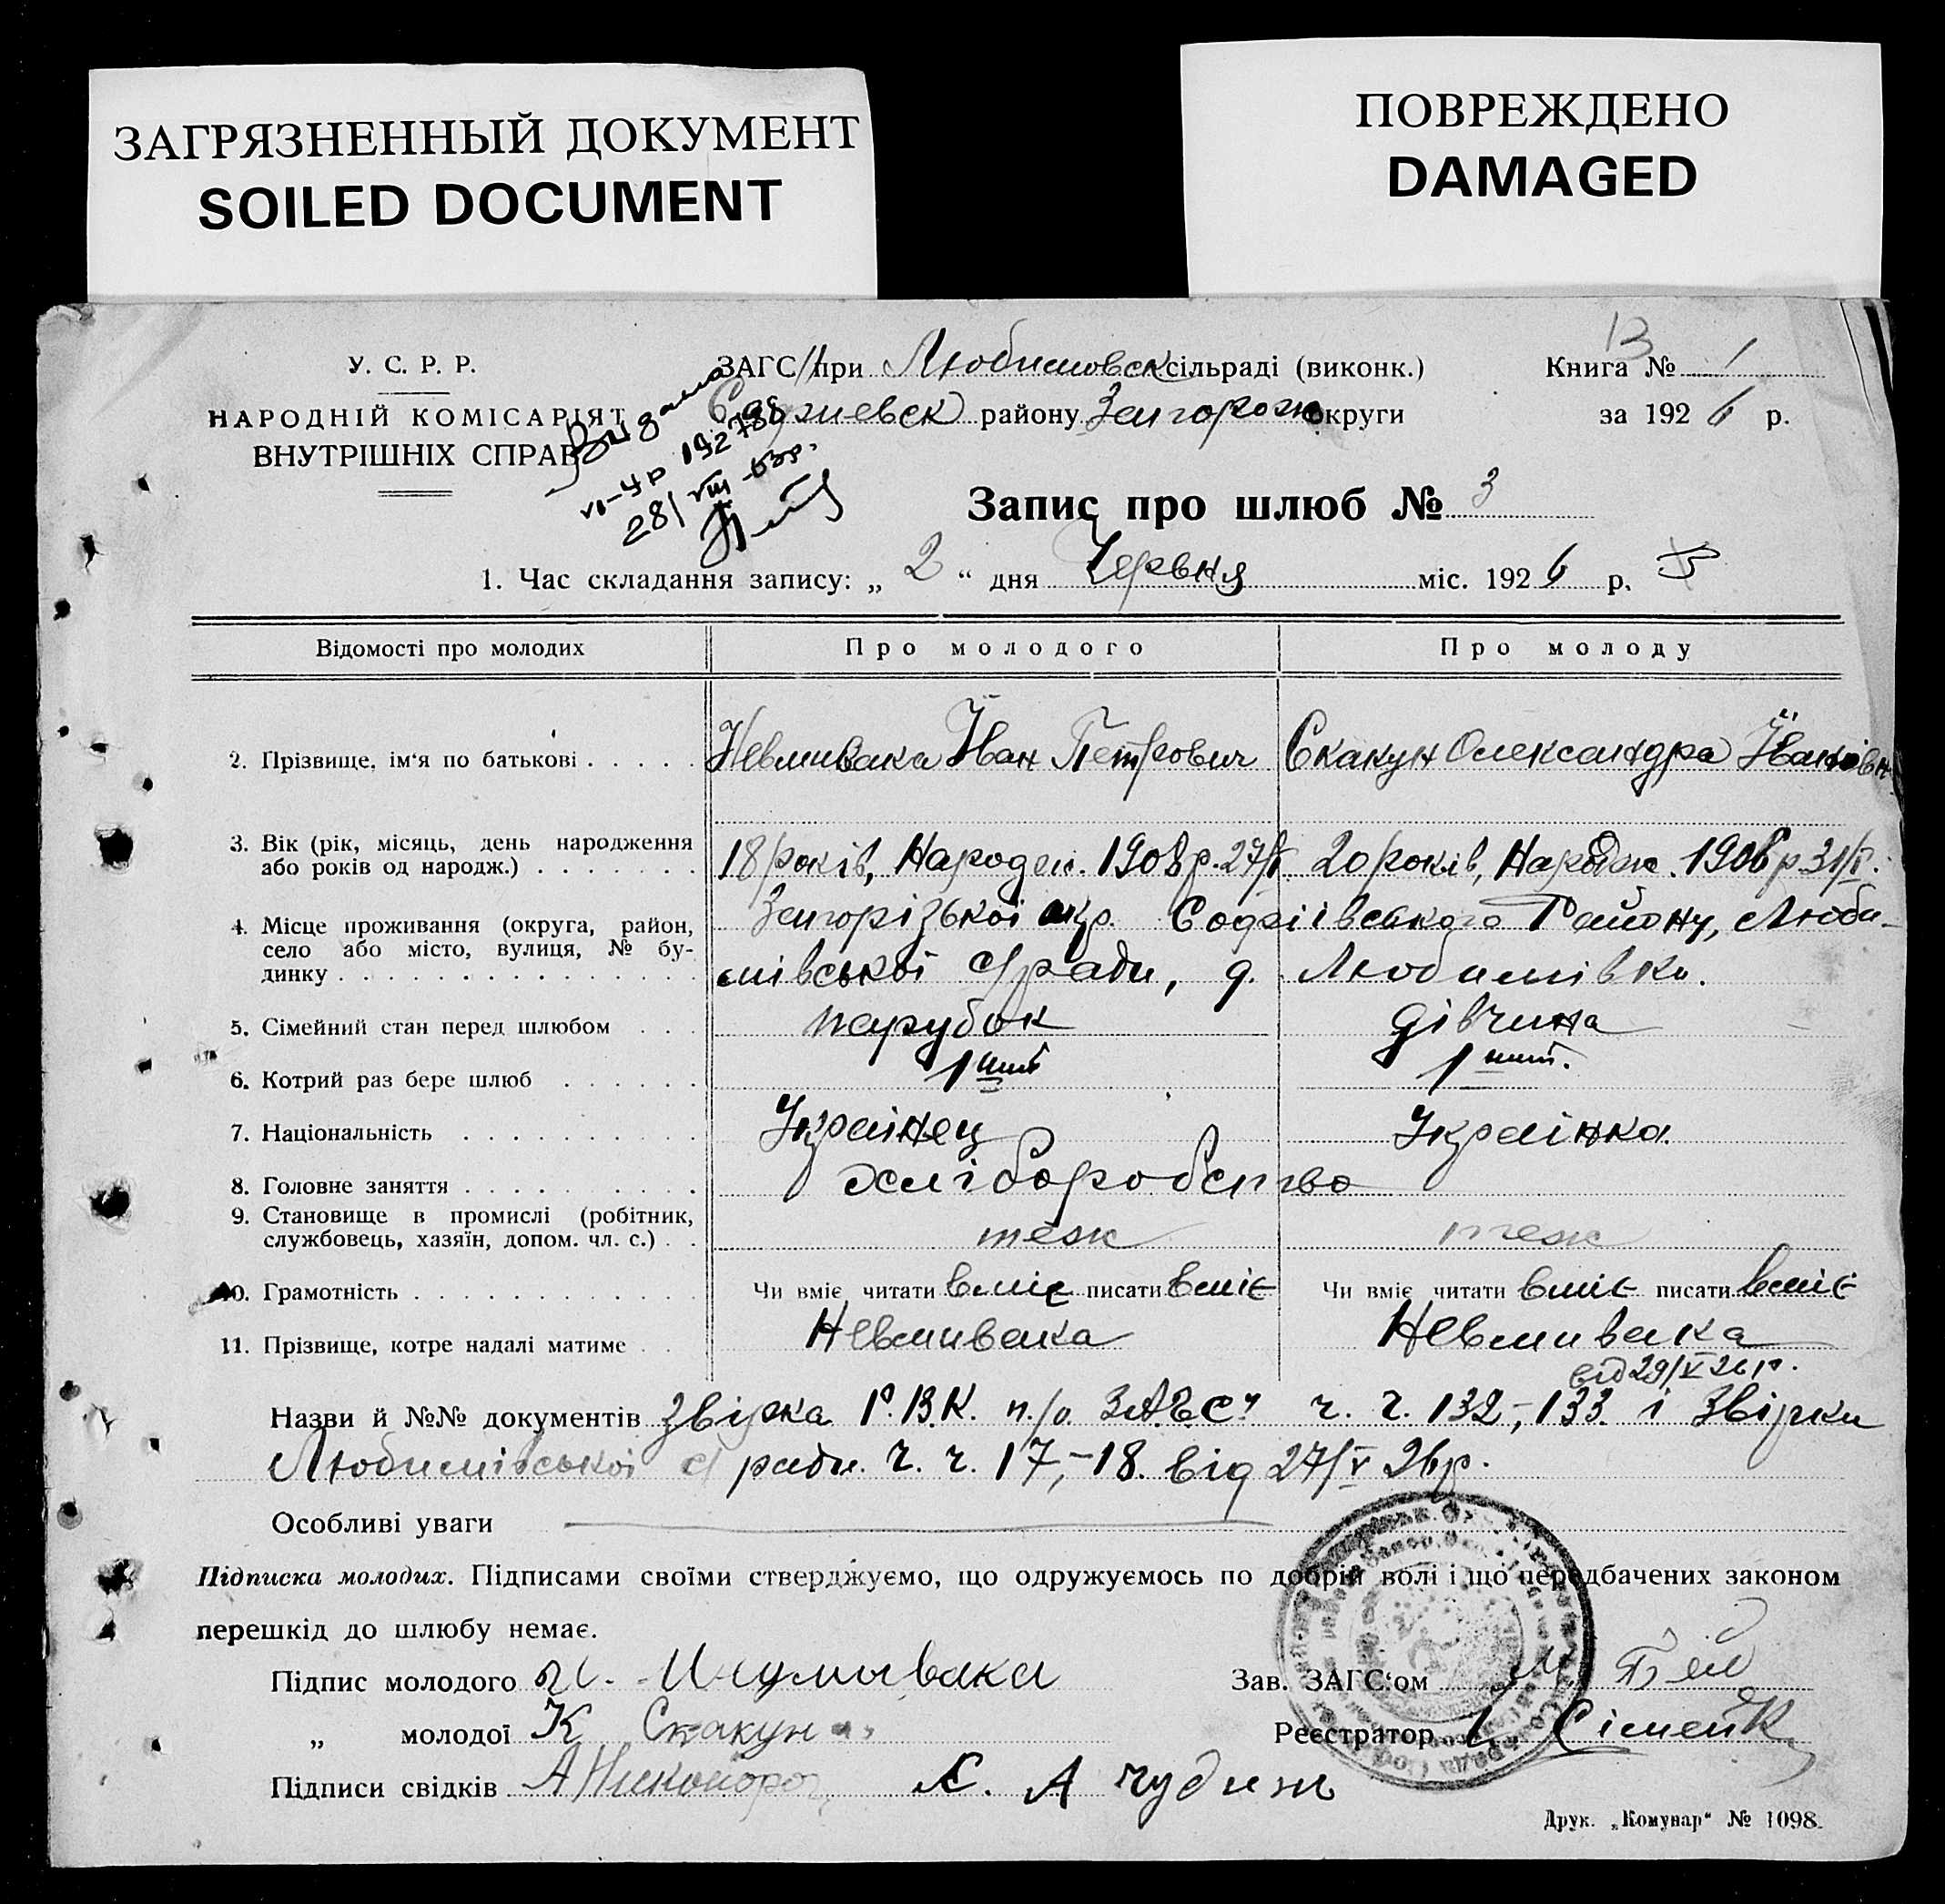 ЗАГРЯЗНЕННЫЙ ДОКУМЕНТ
SOILED DOCUMENT
ПОВРЕЖДЕНО
DAMAGED
У. С. Р. Р.
НАРОДНІЙ КОМІСАРІЯТ
ВНУТРІШНІХ СПРАВ
ЗАГС при Любимовск сільраді (виконк.)
району Запорож округи
Книга № 1
13
за 1926 р.
28/VIII
Запис про шлюб № 3
1. Час складання запису: „ 2 “ дня Червня міс. 1926 р.
Відомості про молодих
Про молодого
Про молоду
2. Прізвище, ім‘я по батькові . . . . . Невмивака Іван Петрович Скакун Олександра Їванівн
3. Вік (рік, місяць, день народження
або років од народж.) . . . . . . . 18 років, Народж. 1908 р. 20 років, Народж. 1906 р.
4. Місце проживання (округа, район, Запорізької окр. Софіївського Району, Люби-
село або місто, вулиця, № бу-
динку . . . . . . . . . . . . . . . мівської с/ради, д. Любимівки.
5. Сімейний стан перед шлюбом . . . парубок дівчина
6. Котрий раз бере шлюб . . . . . . 1ший 1ший.
7. Національність . . . . . . . . . . Українец Українка
8. Головне заняття . . . . . . . . . . хліборобство
9. Становище в промислі (робітник,
службовець, хазяїн, допом. чл. с.) . . теж теж
10. Грамотність . . . . . . . . . . . . Чи вміє читати вміє писати вміє Чи вміє читати вміє писати вміє
11. Прізвище, котре надалі матиме . . Невмивака Невмивака
від 29/V 26 р.
Назви й №№ документів Звірка Р.В.К. п/о ЗАГС ч. ч. 132,-133 і Звірки
Любимівської с/ради. ч. ч. 17,-18. від 27/V 26 р.
Особливі уваги
Підписка молодих. Підписами своїми стверджуємо, що одружуємось по добрій волі і що передбачених законом
перешкід до шлюбу немає.
Підпис молодого
Зав. ЗАГС‘ом
„ молодої К Скакун
Реєстратор
Підписи свідків
Друк. „Комунар“ № 1098.